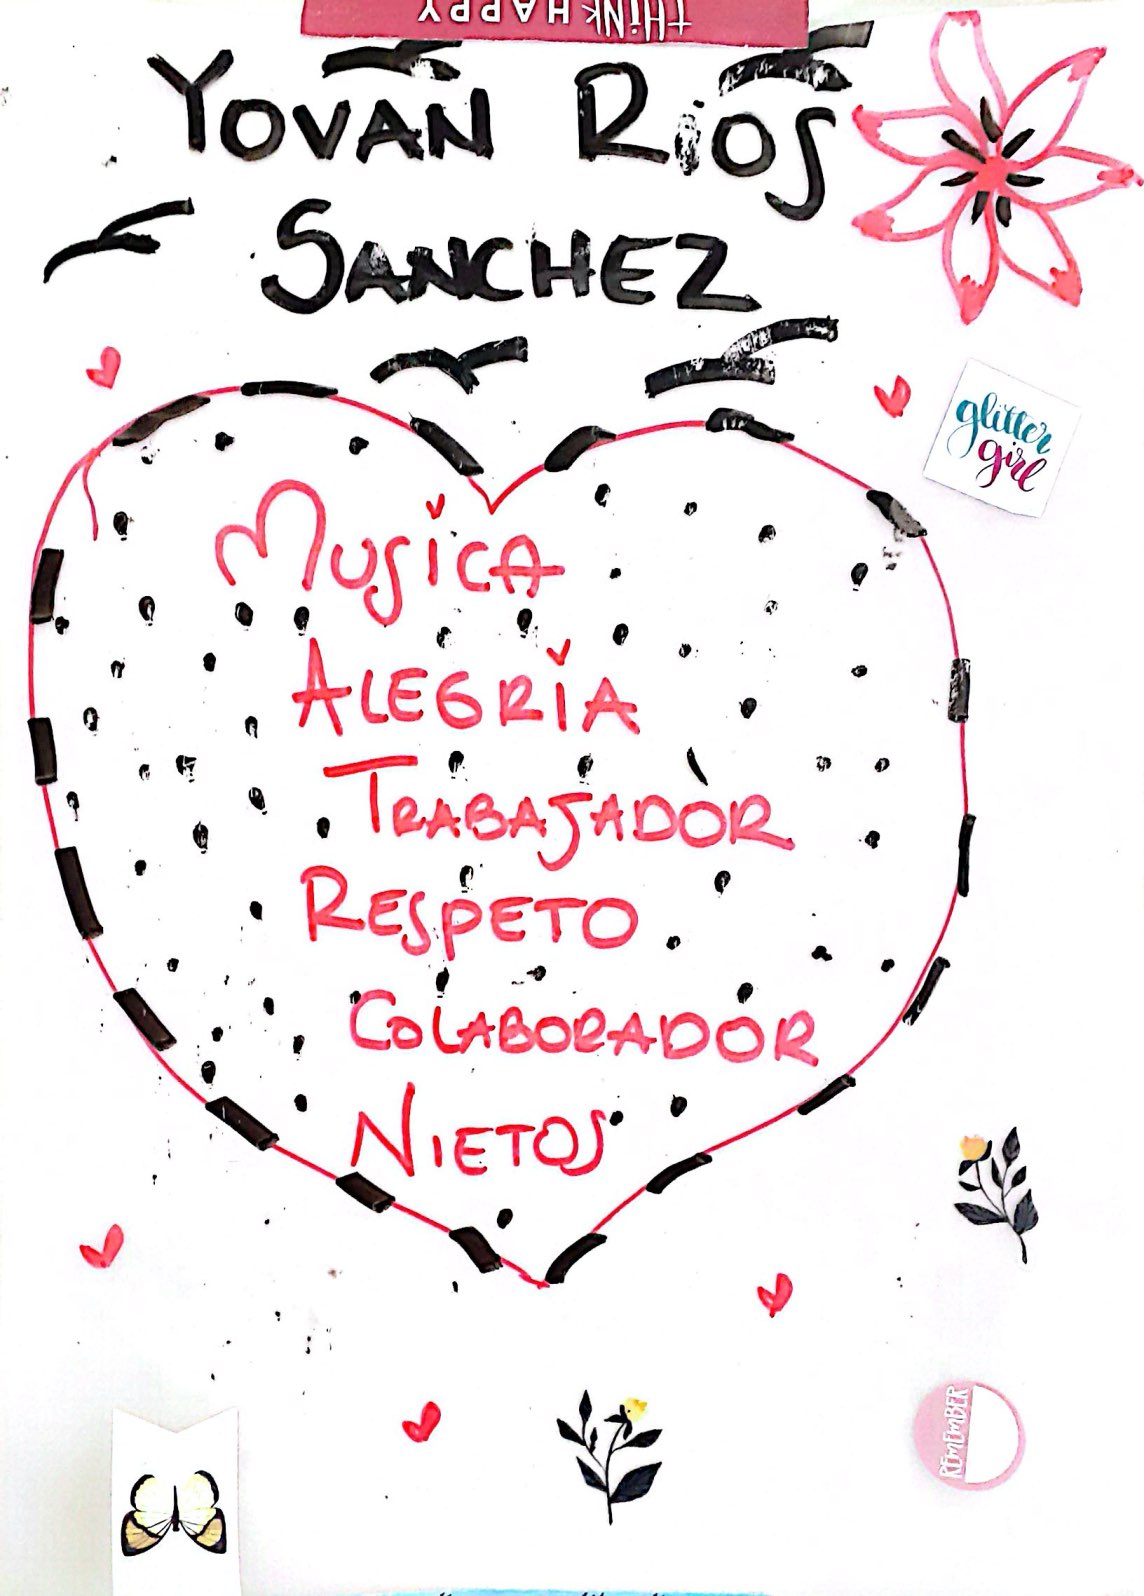 THINK HAPPY
YOVAN RiOS
SANCHEZ
glitter
girl
MUSiCA
ALEGRiA
TRABAJADOR
RESPETO
COLABORADOR
NIETOS
REMEMBER